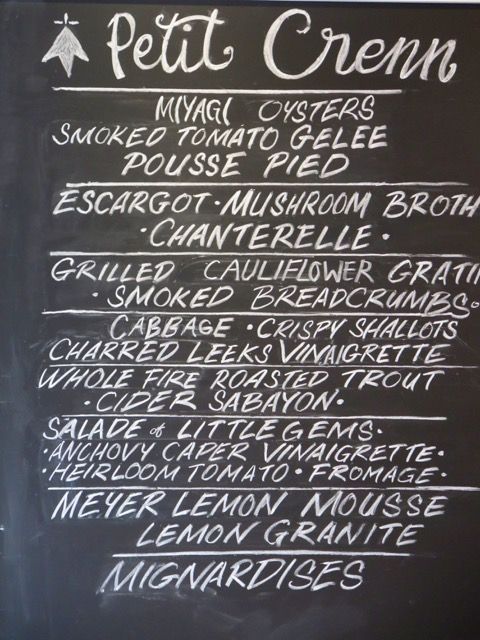 Petit Crenn
MIYAGI OYSTERS
SMOKED TOMATO GELEE
POUSSE PIED
ESCARGOT · MUSHROOM BROTH
· CHANTERELLE ·
GRILLED CAULIFLOWER GRATIN
· SMOKED BREADCRUMBS ·
CABBAGE · CRISPY SHALLOTS
CHARRED LEEKS VINAIGRETTE
WHOLE FIRE ROASTED TROUT
· CIDER SABAYON ·
SALADE of LITTLE GEMS ·
· ANCHOVY CAPER VINAIGRETTE ·
· HEIRLOOM TOMATO · FROMAGE ·
MEYER LEMON MOUSSE
LEMON GRANITE
MIGNARDISES